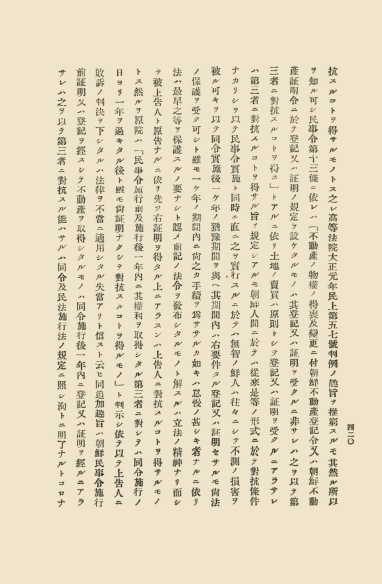 四二〇
抗スルコトヲ得サルモノトス之レ高等法院大正元年民上第五七號判例ノ趣旨ヲ推窮スルモ其然ル所以
ヲ知ル可シ民事令第十三條ニ依レハ「不動產ノ物權ノ得喪及變更ニ付朝鮮不動產登記令又ハ朝鮮不動
產証明令ニ於テ登記又ハ証明ノ規定ヲ設ケタルモノハ其登記又ハ証明ヲ受クルニ非サレハ之ヲ以テ第
三者ニ對抗スルコトヲ得ス」トアルニ依リ土地ノ賣買ハ原則トシテ登記又ハ証明ヲ受クルニアラサレ
ハ第三者ニ對抗スルコトヲ得サル旨ヲ規定シアルモ朝鮮人間ニ於テハ從來是等ノ形式ニ於ケル對抗條件
ナカリシヲ以テ民事令實施ト同時ニ直ニ之ヲ實行スルニ於テハ無智ノ鮮人ハ往々ニシテ不測ノ損害ヲ
被ル可キヲ以テ同令實施後一ケ年ノ猶豫期間ヲ與ヘ其期間內ハ右要件タル登記又ハ証明セサルモ尙法
ノ保護ヲ受ク可シト雖モ一ケ年ノ期間內ニ尙之カ手續ヲ爲ササルカ如キハ怠慢ノ甚シキ者ナルニ依リ
法ハ最早之等ヲ保護スルノ要ナシト認メ前記ノ法令ヲ發布シタルモノト解スルハ立法ノ精神ナリ而シ
テ被上告人ト原告ナルニ依リ先ツ右証明ヲ得タル上ニアラスンハ上告人ニ對抗スルコトヲ得サルモノ
トス然ルヲ原院ハ「民事令施行前及施行後一年內ニ其權利ヲ取得シタル第三者ニ對シテハ同令施行ノ
日ヨリ一年ヲ過キタル後ト雖モ尙証明ナクシテ對抗スルコトヲ得ルモノ」ト判示シ依テ以テ上告人ニ
敗訴ノ判決ヲ下シタルハ法律ヲ不當ニ適用シタル失當アリト信スト云ヒ同追加趣旨ハ朝鮮民事令施行
前証明又ハ登記ヲ經スシテ不動產ヲ取得シタルモノハ同令施行後一年內ニ登記又ハ証明ヲ經ルニアラ
サレハ之ヲ以テ第三者ニ對抗スル能ハサルハ同令及民法施行法ノ規定ニ照シ洵トニ明了ナルトコロナ